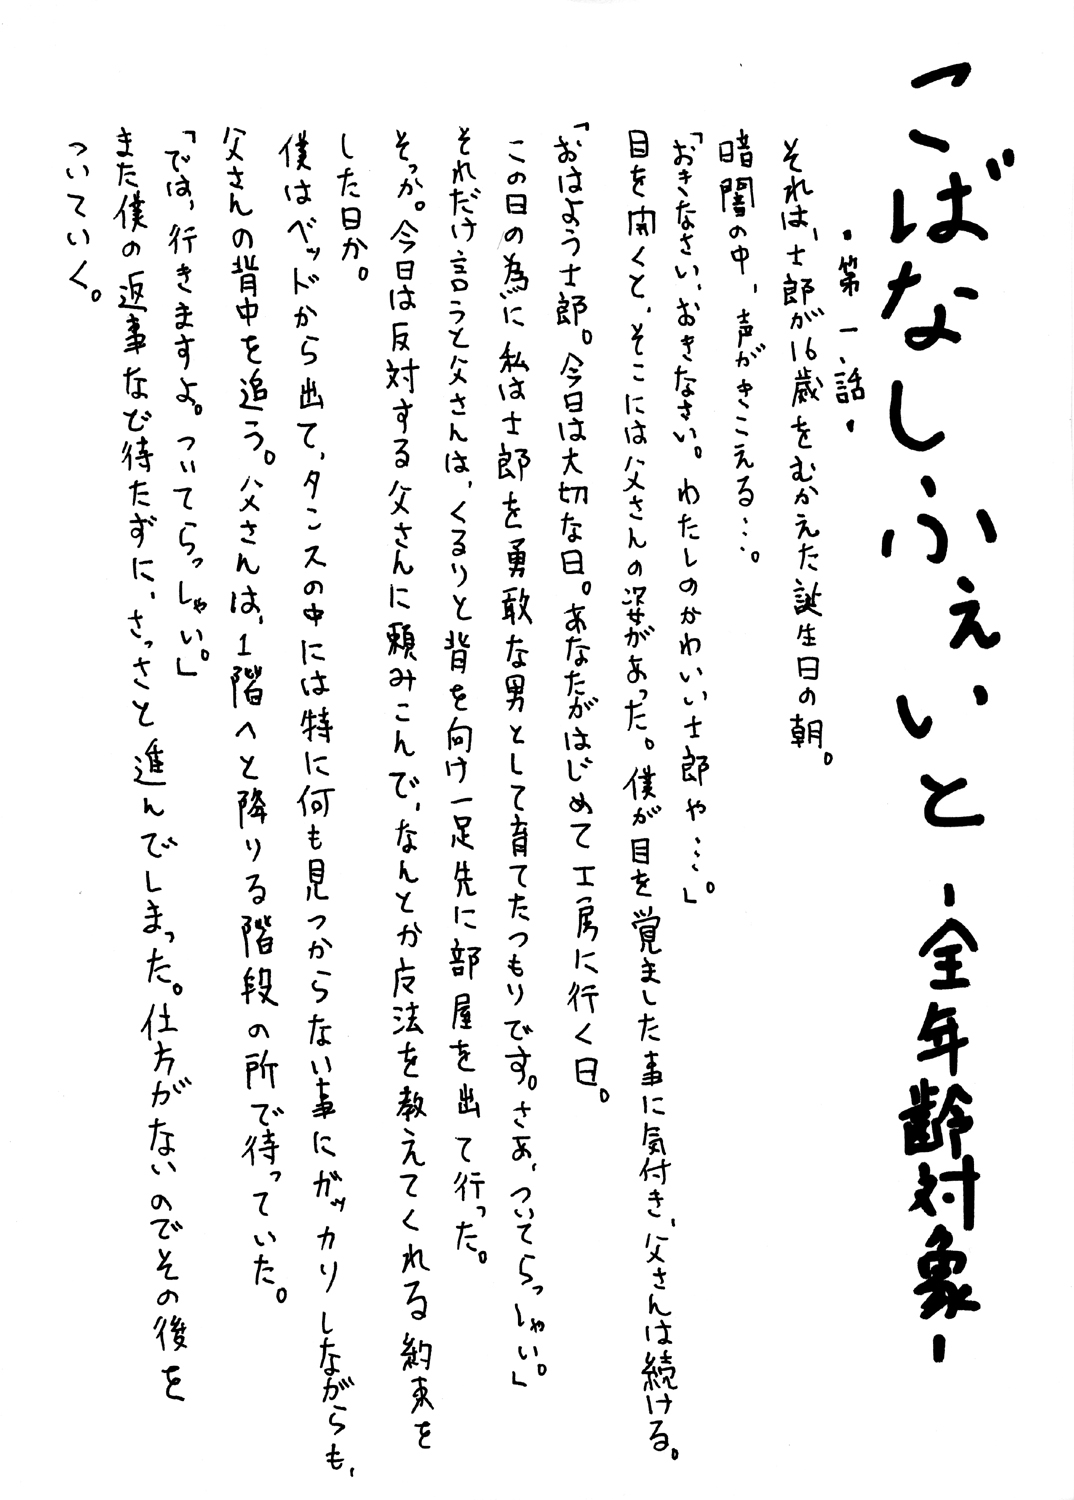 こばなしふぇいと-全年齢対象-
・第一話・
それは、士郎が16歳をむかえた誕生日の朝。
暗闇の中、声がきこえる…。
「おきなさい、おきなさい。わたしのかわいい士郎や…」。
目を開くと、そこには父さんの姿があった。僕が目を覚ました事に気付き、父さんは続ける。
「おはよう士郎。今日は大切な日。あなたがはじめて工房に行く日。
この日の為に私は士郎を勇敢な男として育てたつもりです。さあ、ついてらっしゃい。」
それだけ言うと父さんは、くるりと背を向け一足先に部屋を出て行った。
そっか。今日は反対する父さんに頼みこんで、なんとか魔法を教えてくれる約束を
した日か。
僕はベッドから出て、タンスの中には特に何も見つからない事にガッカリしながらも、
父さんの背中を追う。父さんは、1階へと降りる階段の所で待っていた。
「では、行きますよ。ついてらっしゃい。」
また僕の返事など待たずに、さっさと進んでしまった。仕方がないのでその後を
ついていく。